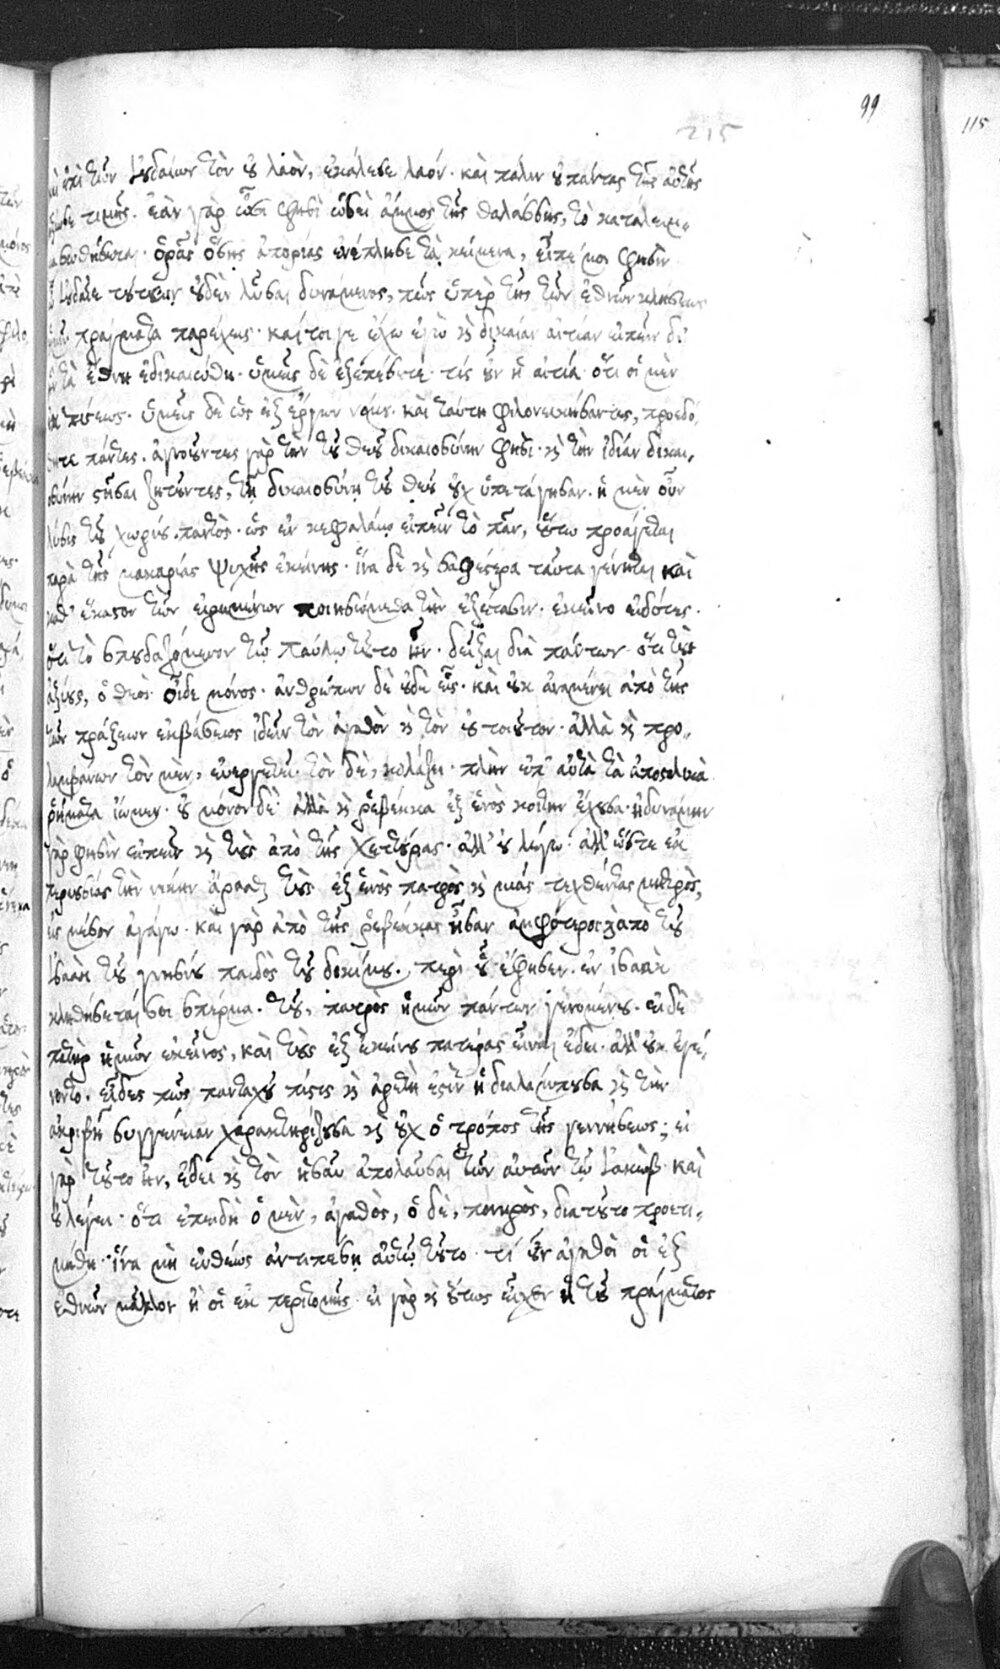 99
115
215
καὶ ἐπὶ τῶν Ἰουδαίων τὸν οὐ λαὸν, ἐκάλεσε λαόν· καὶ πάλιν οὐ πάντας τῆς αὐτῆς
τιμῆς. ἐὰν γὰρ ὦσι φησὶ ὡσεὶ ἄμμος τῆς θαλάσσης, τὸ κατάλειμ-
μα σωθήσεται· ὁρᾷς ὅσης ἀπορίας ἐνέπλησε τὰ κείμενα, εἰπέ μοι φησὶν
ὦ Ἰουδαῖε τούτων οὐδὲν λῦσαι δυνάμενος, πῶς ὑπὲρ τῆς τῶν ἐθνῶν κλήσεως
ἡμῖν πράγματα παρέχεις· καίτοιγε ἔχω ἐγὼ καὶ δικαίαν αἰτίαν εἰπεῖν δι
ἣν τὰ ἔθνη ἐδικαιώθη· ὑμεῖς δὲ ἐξεπέσετε· τίς οὖν ἡ αἰτία· ὅτι οἱ μὲν
ἐκ πίστεως· ὑμεῖς δὲ ὡς ἐξ ἔργων νόμου. καὶ ταύτῃ φιλονεικήσαντες, προεδό-
θητε πάντες. ἀγνοοῦντες γὰρ τὴν τοῦ θεοῦ δικαιοσύνην φησὶ· καὶ τὴν ἰδίαν δικαι-
οσύνην στῆσαι ζητοῦντες, τῇ δικαιοσύνῃ τοῦ θεοῦ οὐχ ὑπετάγησαν. ἡ μὲν οὖν
λύσις τοῦ χωρίου παντὸς· ὡς ἐν κεφαλαίῳ εἰπεῖν τὸ πᾶν, οὕτω προάγεται
παρὰ τῆς μακαρίας ψυχῆς ἐκείνης· ἵνα δὲ καὶ σαφέστερα ταῦτα γένηται καὶ
καθ' ἕκαστον τῶν εἰρημένων ποιησώμεθα τὴν ἐξέτασιν· ἐκεῖνο εἰδότες·
ὅτι τὸ σπουδαζόμενον τῷ παύλῳ τοῦτο ἦν· δεῖξαι διὰ πάντων ὅτι τοὺς
ἀξίους, ὁ θεὸς οἶδε μόνος· ἀνθρώπων δὲ οὐδὲ εἷς· καὶ οὐκ ἀναμένει ἀπὸ τῆς
τῶν πράξεων ἐκβάσεως ἰδεῖν τὸν ἀγαθὸν καὶ τὸν οὐ τοιοῦτον· ἀλλὰ καὶ προ-
λαμβάνων τὸν μὲν, εὐεργετεῖ· τὸν δὲ, κολάζει· πλὴν ἐπ' αὐτὰ τὰ ἀποστολικὰ
ῥήματα ἴωμεν· οὐ μόνον δὲ· ἀλλὰ καὶ ῥεβέκκα ἐξ ἑνὸς κοίτην ἔχουσα· ἠδυνάμην
γὰρ φησὶν εἰπεῖν καὶ τοὺς ἀπὸ τῆς χεττούρας· ἀλλ' οὐ λέγω· ἀλλ' ὥστε ἐκ
περιουσίας τὴν νίκην ἄρασθαι τοὺς ἐξ ἑνὸς πατρὸς καὶ μιᾶς τεχθέντας μητρὸς,
εἰς μέσον ἀγάγω· καὶ γὰρ ἀπὸ τῆς ῥεβέκκας ἦσαν ἀμφότεροι καὶ ἀπὸ τοῦ
ἰσαὰκ τοῦ γνησίου παιδὸς τοῦ δοκίμου, περὶ οὗ ἔφησεν· ἐν ἰσαὰκ
κληθήσεταί σοι σπέρμα· τοῦ πατρὸς ἡμῶν πάντων γενομένου· εἰ δὲ
πατὴρ ἡμῶν ἐκεῖνος, καὶ τοὺς ἐξ ἐκείνου πατέρας εἶναι ἔδει· ἀλλ' οὐκ ἐγέ-
νοντο. εἶδες πῶς πανταχοῦ πίστις καὶ ἀρετή ἐστιν ἡ διαλάμπουσα καὶ τὴν
ἀκριβῆ συγγένειαν χαρακτηρίζουσα καὶ οὐχ ὁ τρόπος τῆς γεννήσεως; εἰ
γὰρ τοῦτο ἦν, ἔδει καὶ τὸν ἠσαῦ ἀπολαῦσαι τῶν αὐτῶν τῷ Ἰακώβ· καὶ
οὐ λέγει· ὅτι ἐπειδὴ ὁ μὲν, ἀγαθὸς, ὁ δὲ, πονηρὸς, διὰ τοῦτο προετι-
μήθη· ἵνα μὴ εὐθέως ἀντιπέσῃ αὐτῷ τοῦτο· τί οὖν ἀγαθοὶ οἱ ἐξ
ἐθνῶν μᾶλλον ἢ οἱ ἐκ περιτομῆς· εἰ γὰρ καὶ οὕτως εἶχεν ἡ τοῦ πράγματος